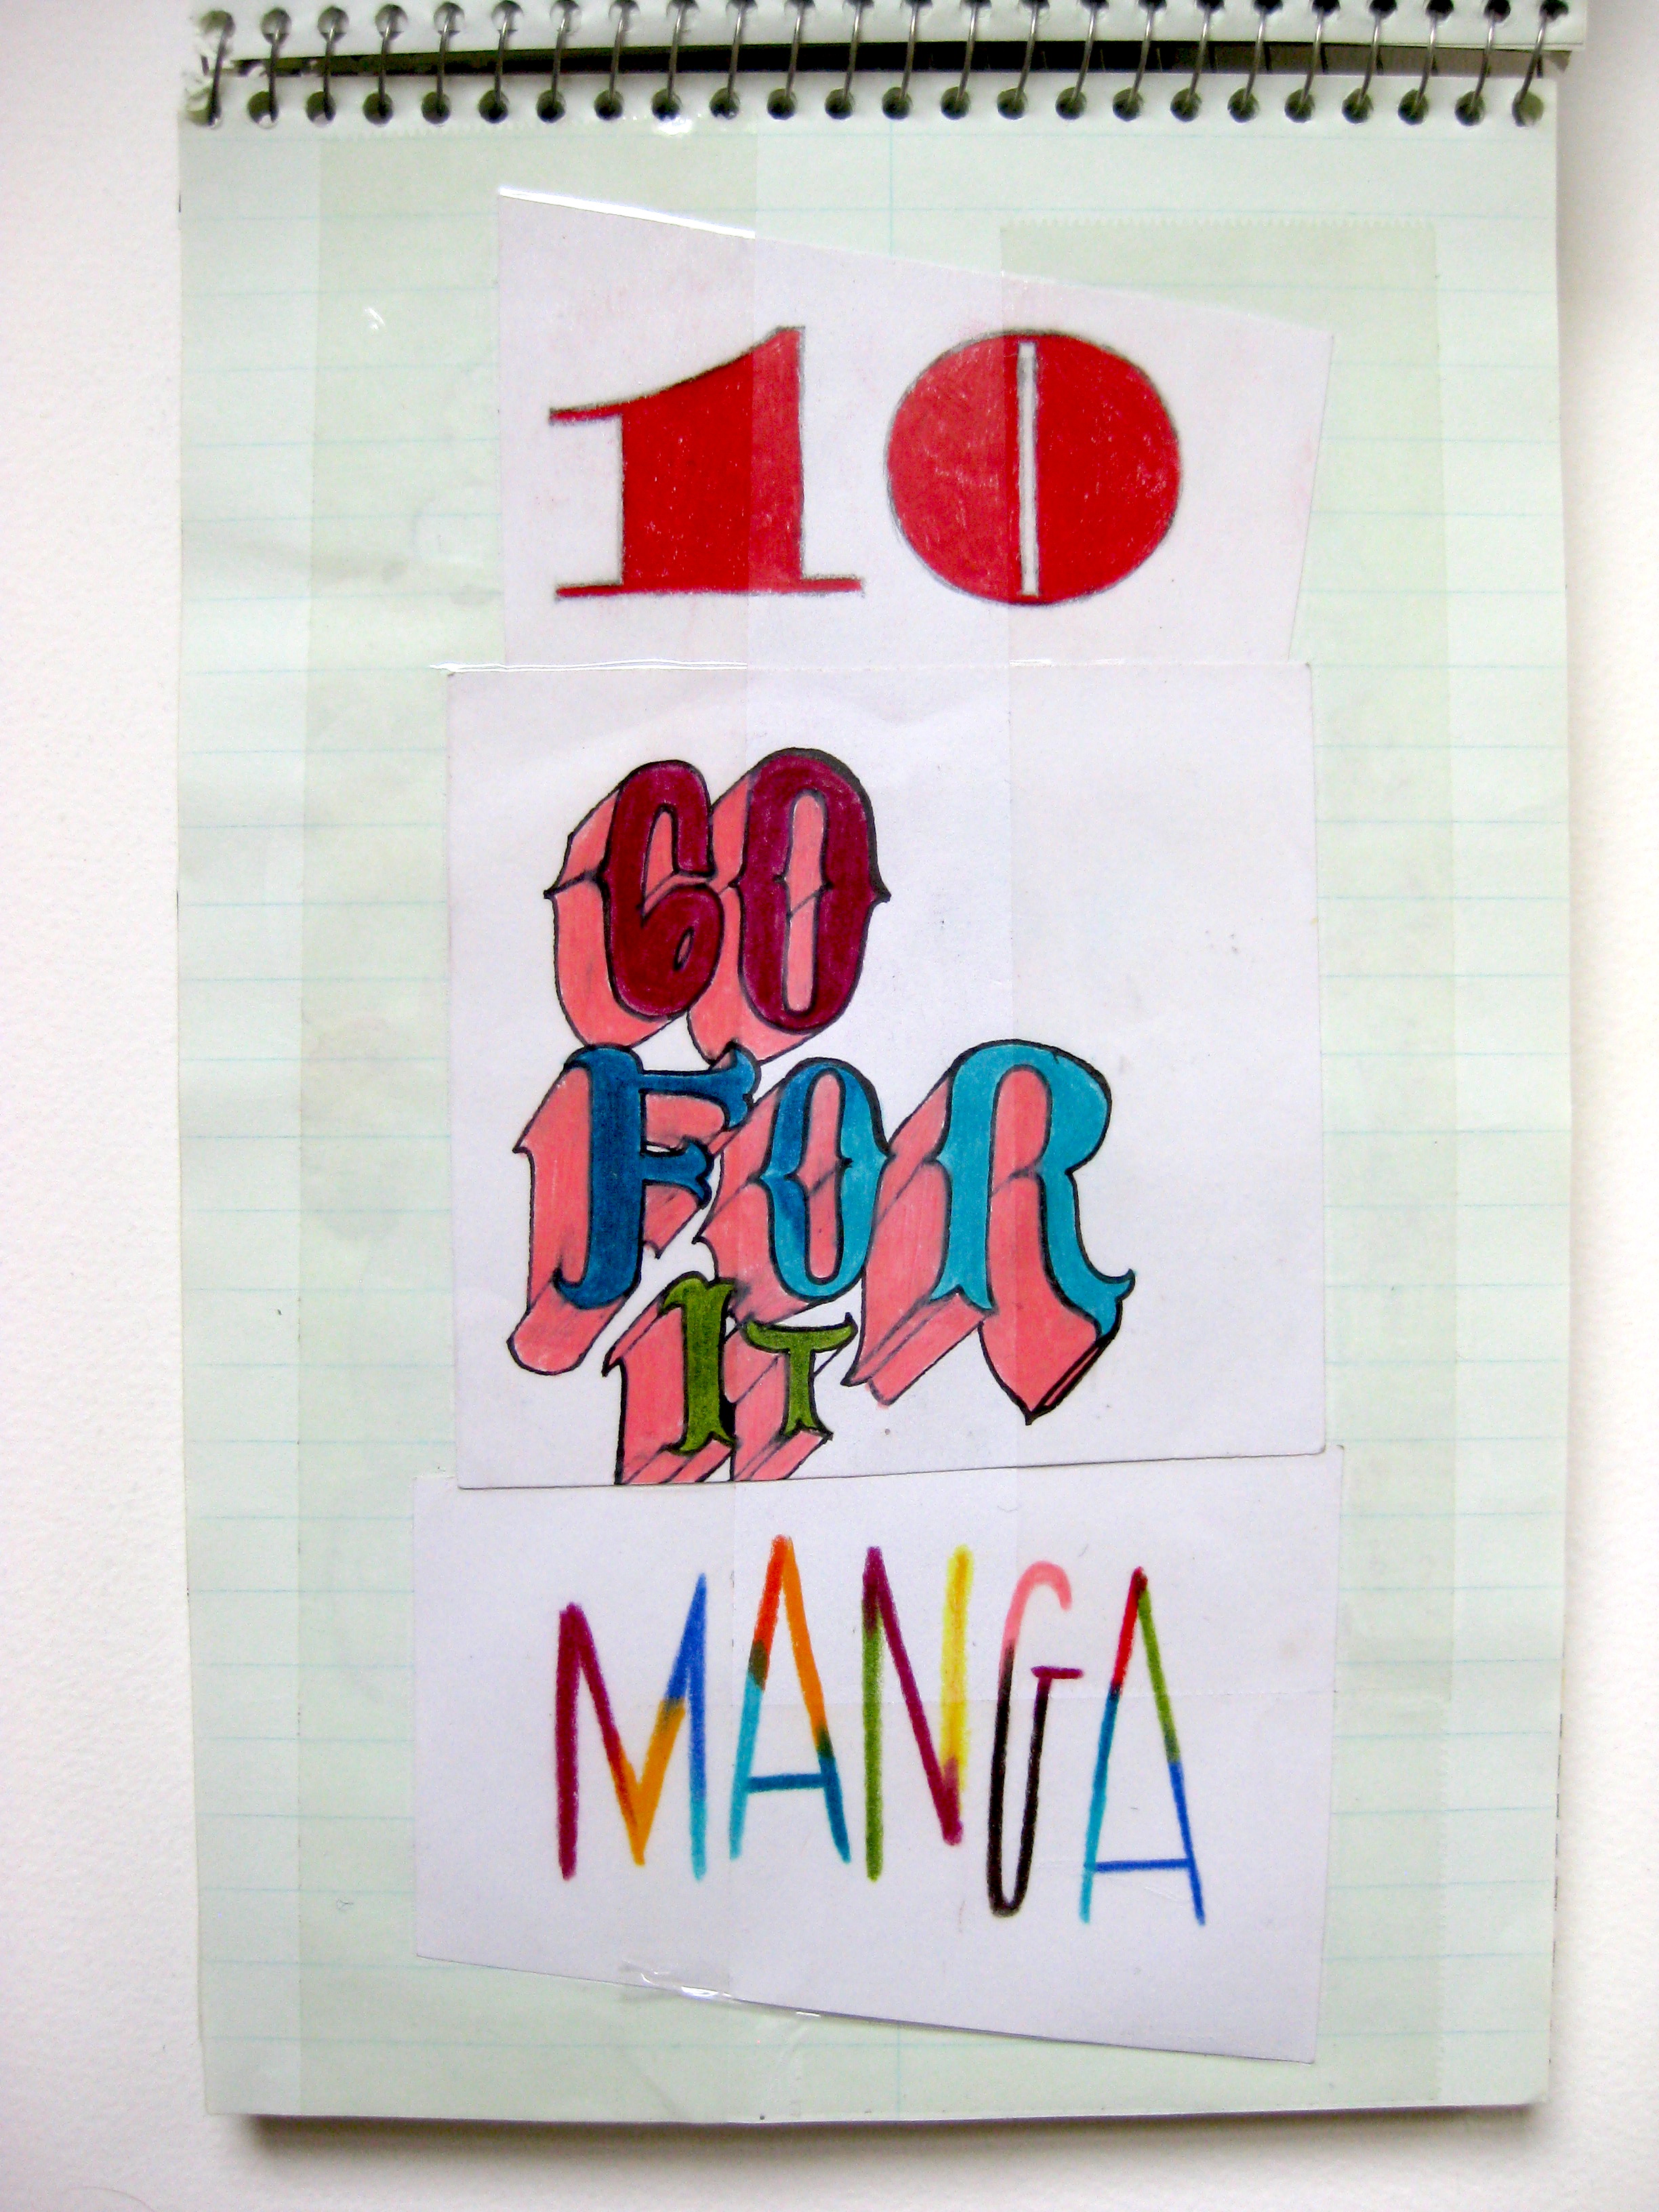 10
GO
FOR
IT
MANGA